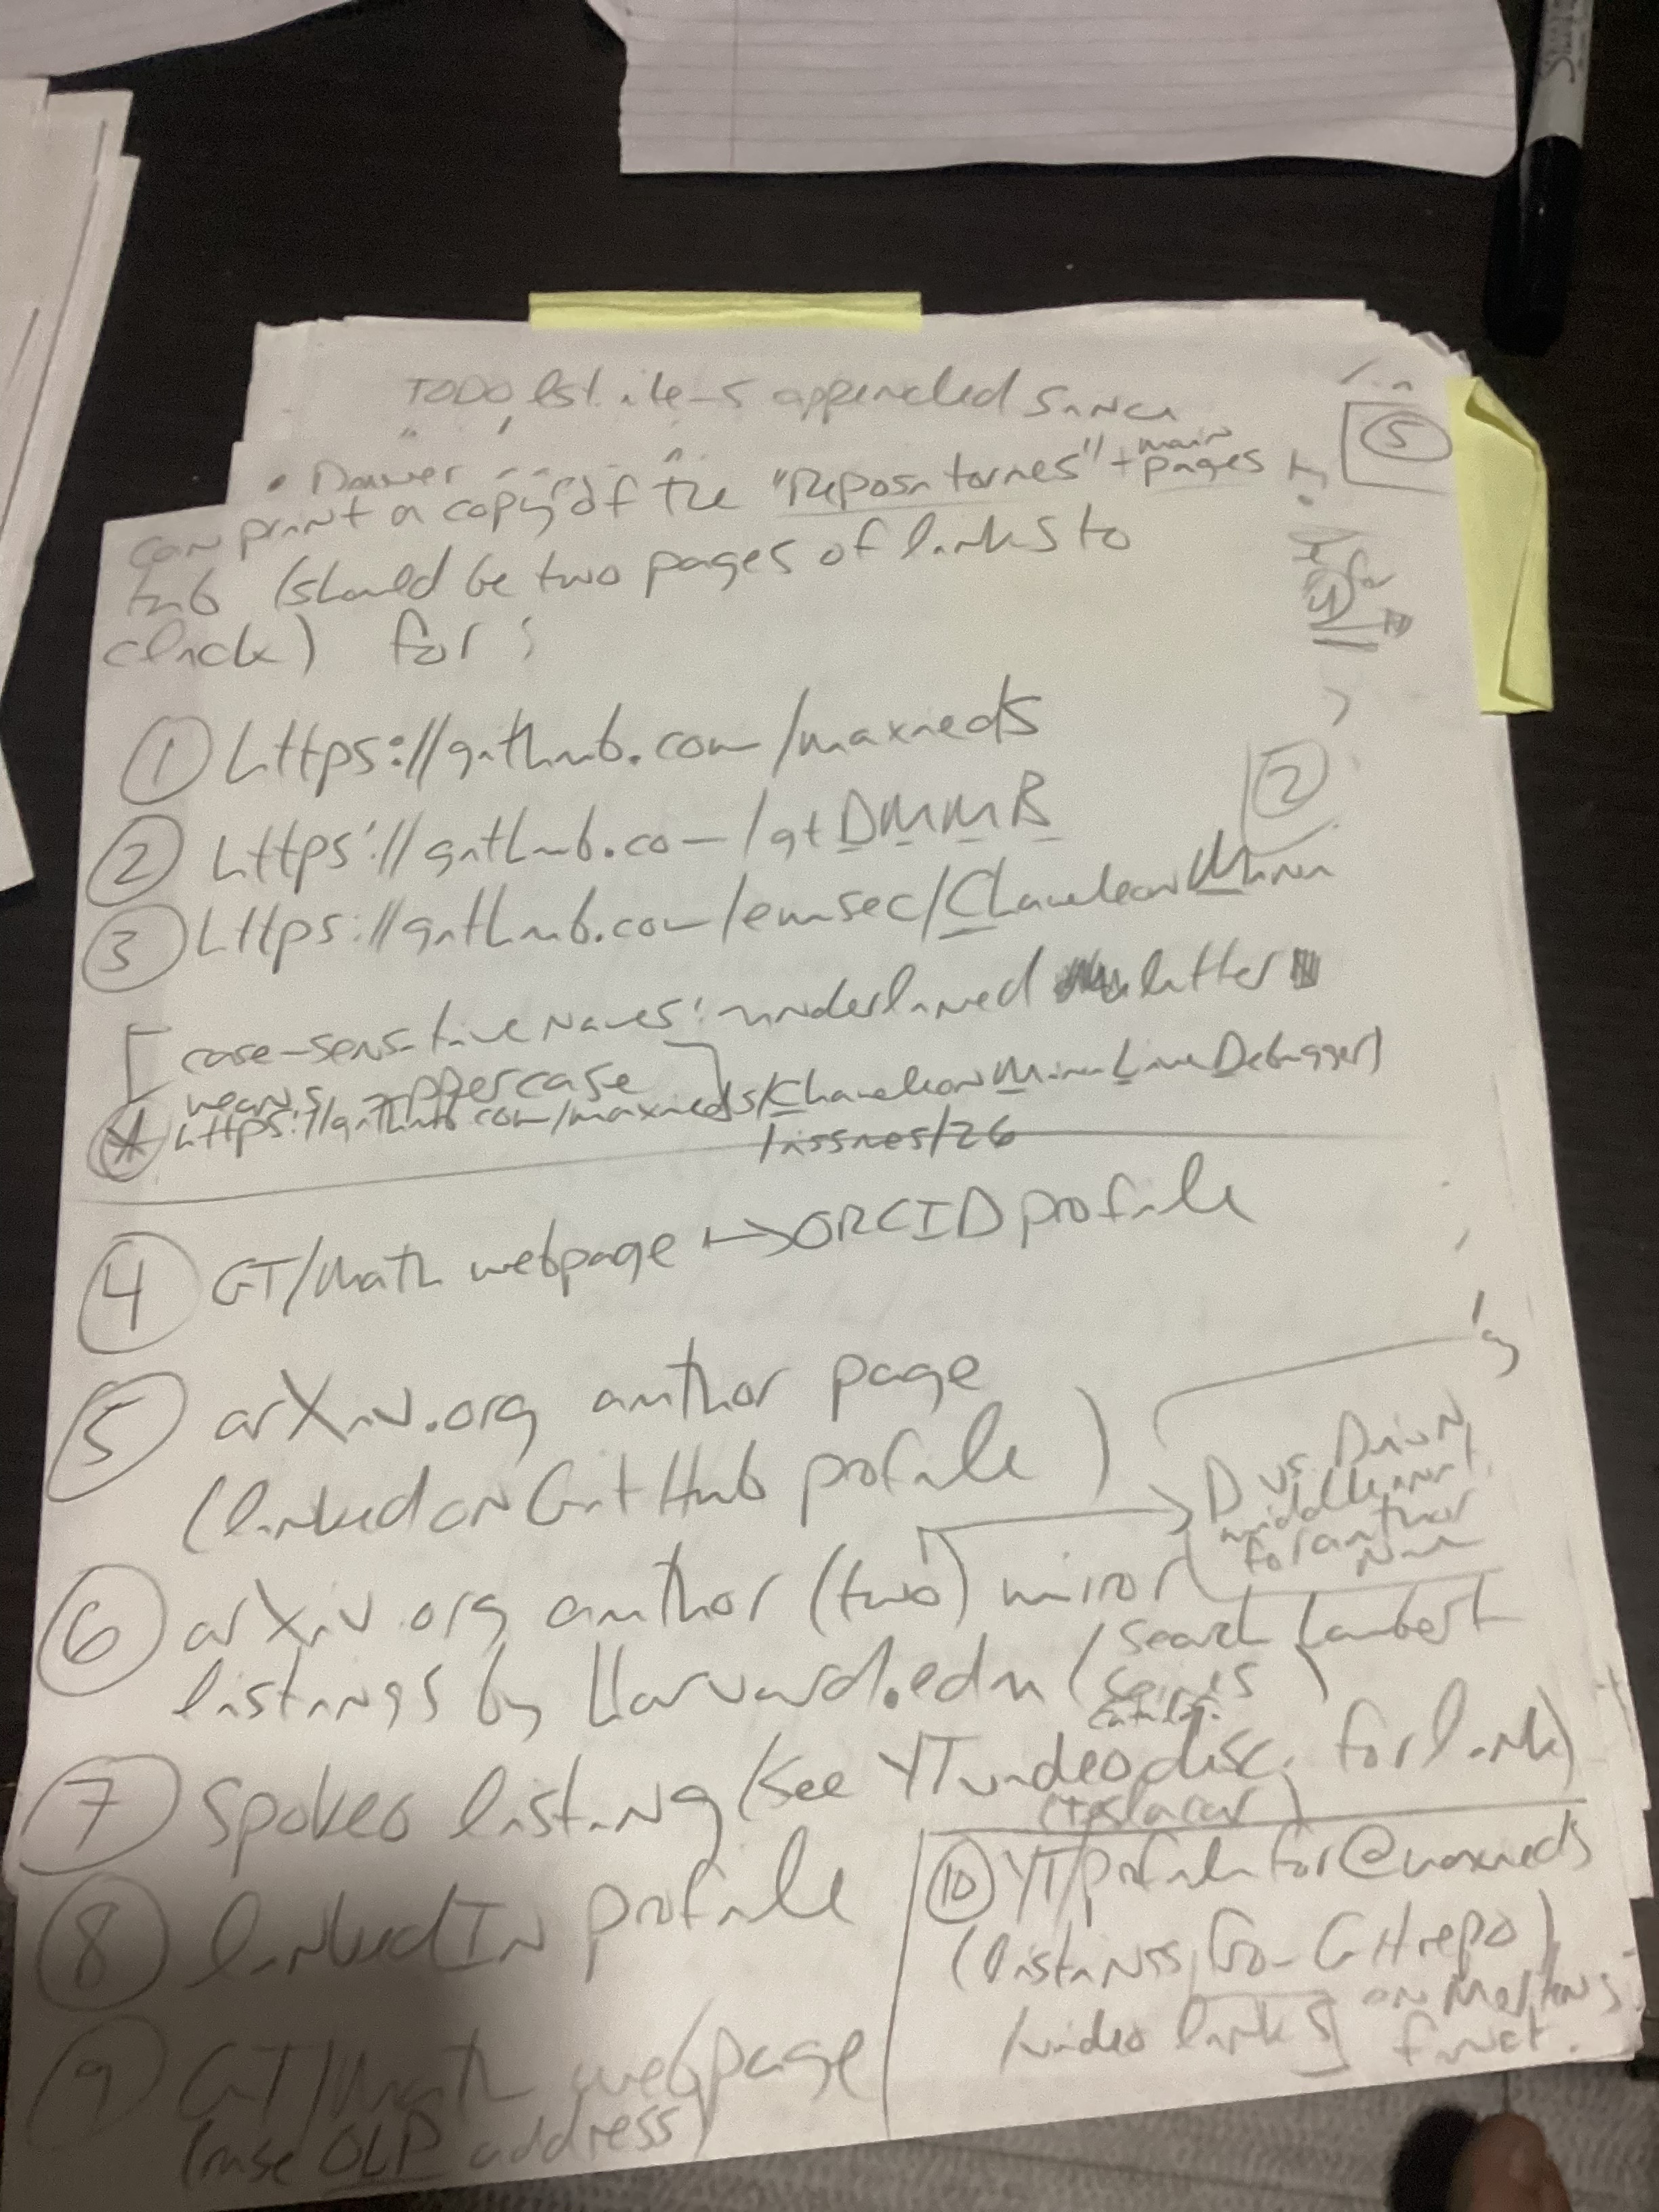 TODO list items appended since
5
can print a copy of the "Repositories" + main pages
tab (should be two pages of links to
click) for:
① https://github.com/maxieds
2
② https://github.com/gtDMMB
③ https://github.com/emsec/ChameleonMini
[case-sensitive names: underlined letter
means uppercase]
* https://github.com/maxieds/ChameleonMiniLiveDebugger/
/issues/26
④ GT/Math webpage → ORCID profile
⑤ arXiv.org author page
(linked on GitHub profile)
D vs.
middle
for author
name
⑥ arXiv.org author (two) mirror
listings by Harvard.edu (search Lambert
series)
⑦ Spokeo listing (see YT video disc. for link)
⑧ linkedIn profile
⑨ GT/Math webpage
(use OLP address)
⑩ YT/profile for @maxieds
(listings, GH repo)
/video links] on Mertens
funct.